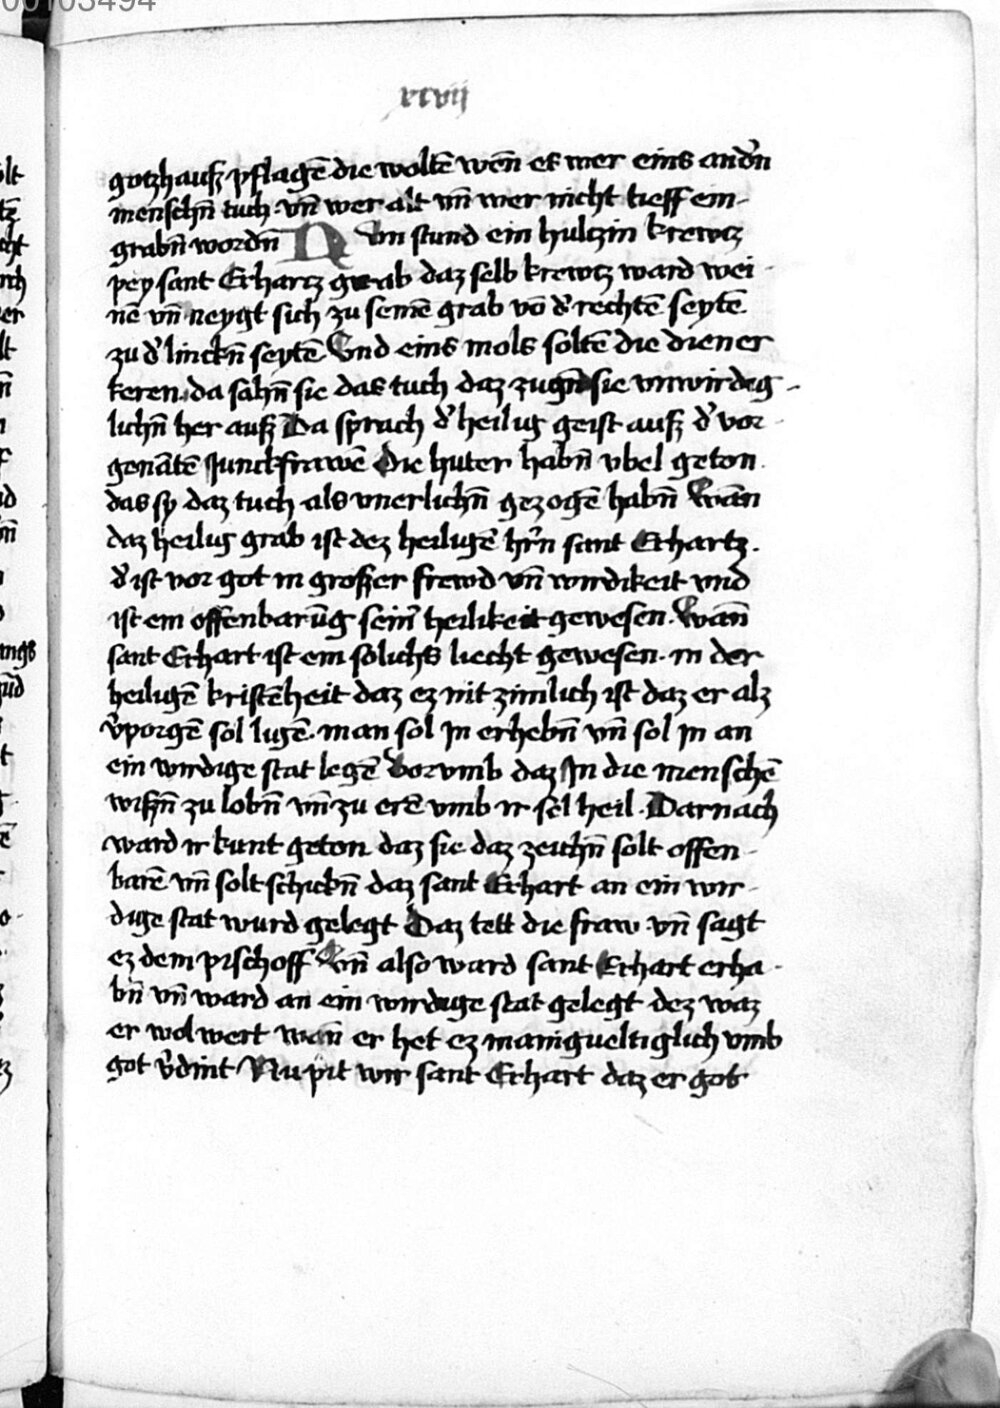 00103494
xcvij
gotzhauß pflagē die woltē wen̄ es wer eins and̕n
menschn̄ tuch · vn̄ wer alt vn̄ wer nicht tieff ein-
grabn̄ wordn̄ Nvn stund ein hultzin krewtz
pey sant Erhartz grab daz selb krewtz ward wei-
nē vn̄ neygt sich zu seinē grab vō d̕ rechtē seytē
zu d̕ linckn̄ seytē Vnd eins mols soltē die diener
keren da sahn̄ sie das tuch daz zugn̄ sie vnwirdig-
lichn̄ her auß Da sprach d̕ heilig geist auß d̕ vor-
genātē Junckfrawē Die huter habn̄ vbel geton
das sy daz tuch als vnerlichn̄ gezogē habn̄ Wān
daz heilig grab ist dez heiligē hr̄n sant Erhartz .
d̕ ist vor got in großer frewd vn̄ wirdikeit vnd
ist ein offenbarūg sein̕ heilikeit gewesen . Wān
sant Erhart ist ein solichs liecht gewesen . in der
heiligē kristēheit daz ez nit zimlich ist daz er alz
v̕porgē sol ligē . man sol in erhebn̄ vn̄ sol in an
ein wirdige stat legē Dorvmb daz In die menschē
wißn̄ zu lobn̄ vn̄ zu erē vmb ir sel heil . Darnach
ward ir kunt geton daz sie daz zeichn̄ solt offen-
barē vn̄ solt schickn̄ daz sant Erhart an ein wir-
dige stat wurd gelegt Daz tett die fraw vn̄ sagt
ez dem pischoff Vn̄ also ward sant Erhart erha-
bn̄ vn̄ ward an ein wirdige stat gelegt dez waz
er wol wert wān er het ez manigueltiglich vmb
got v̕dint Nu pit wir sant Erhart daz er got